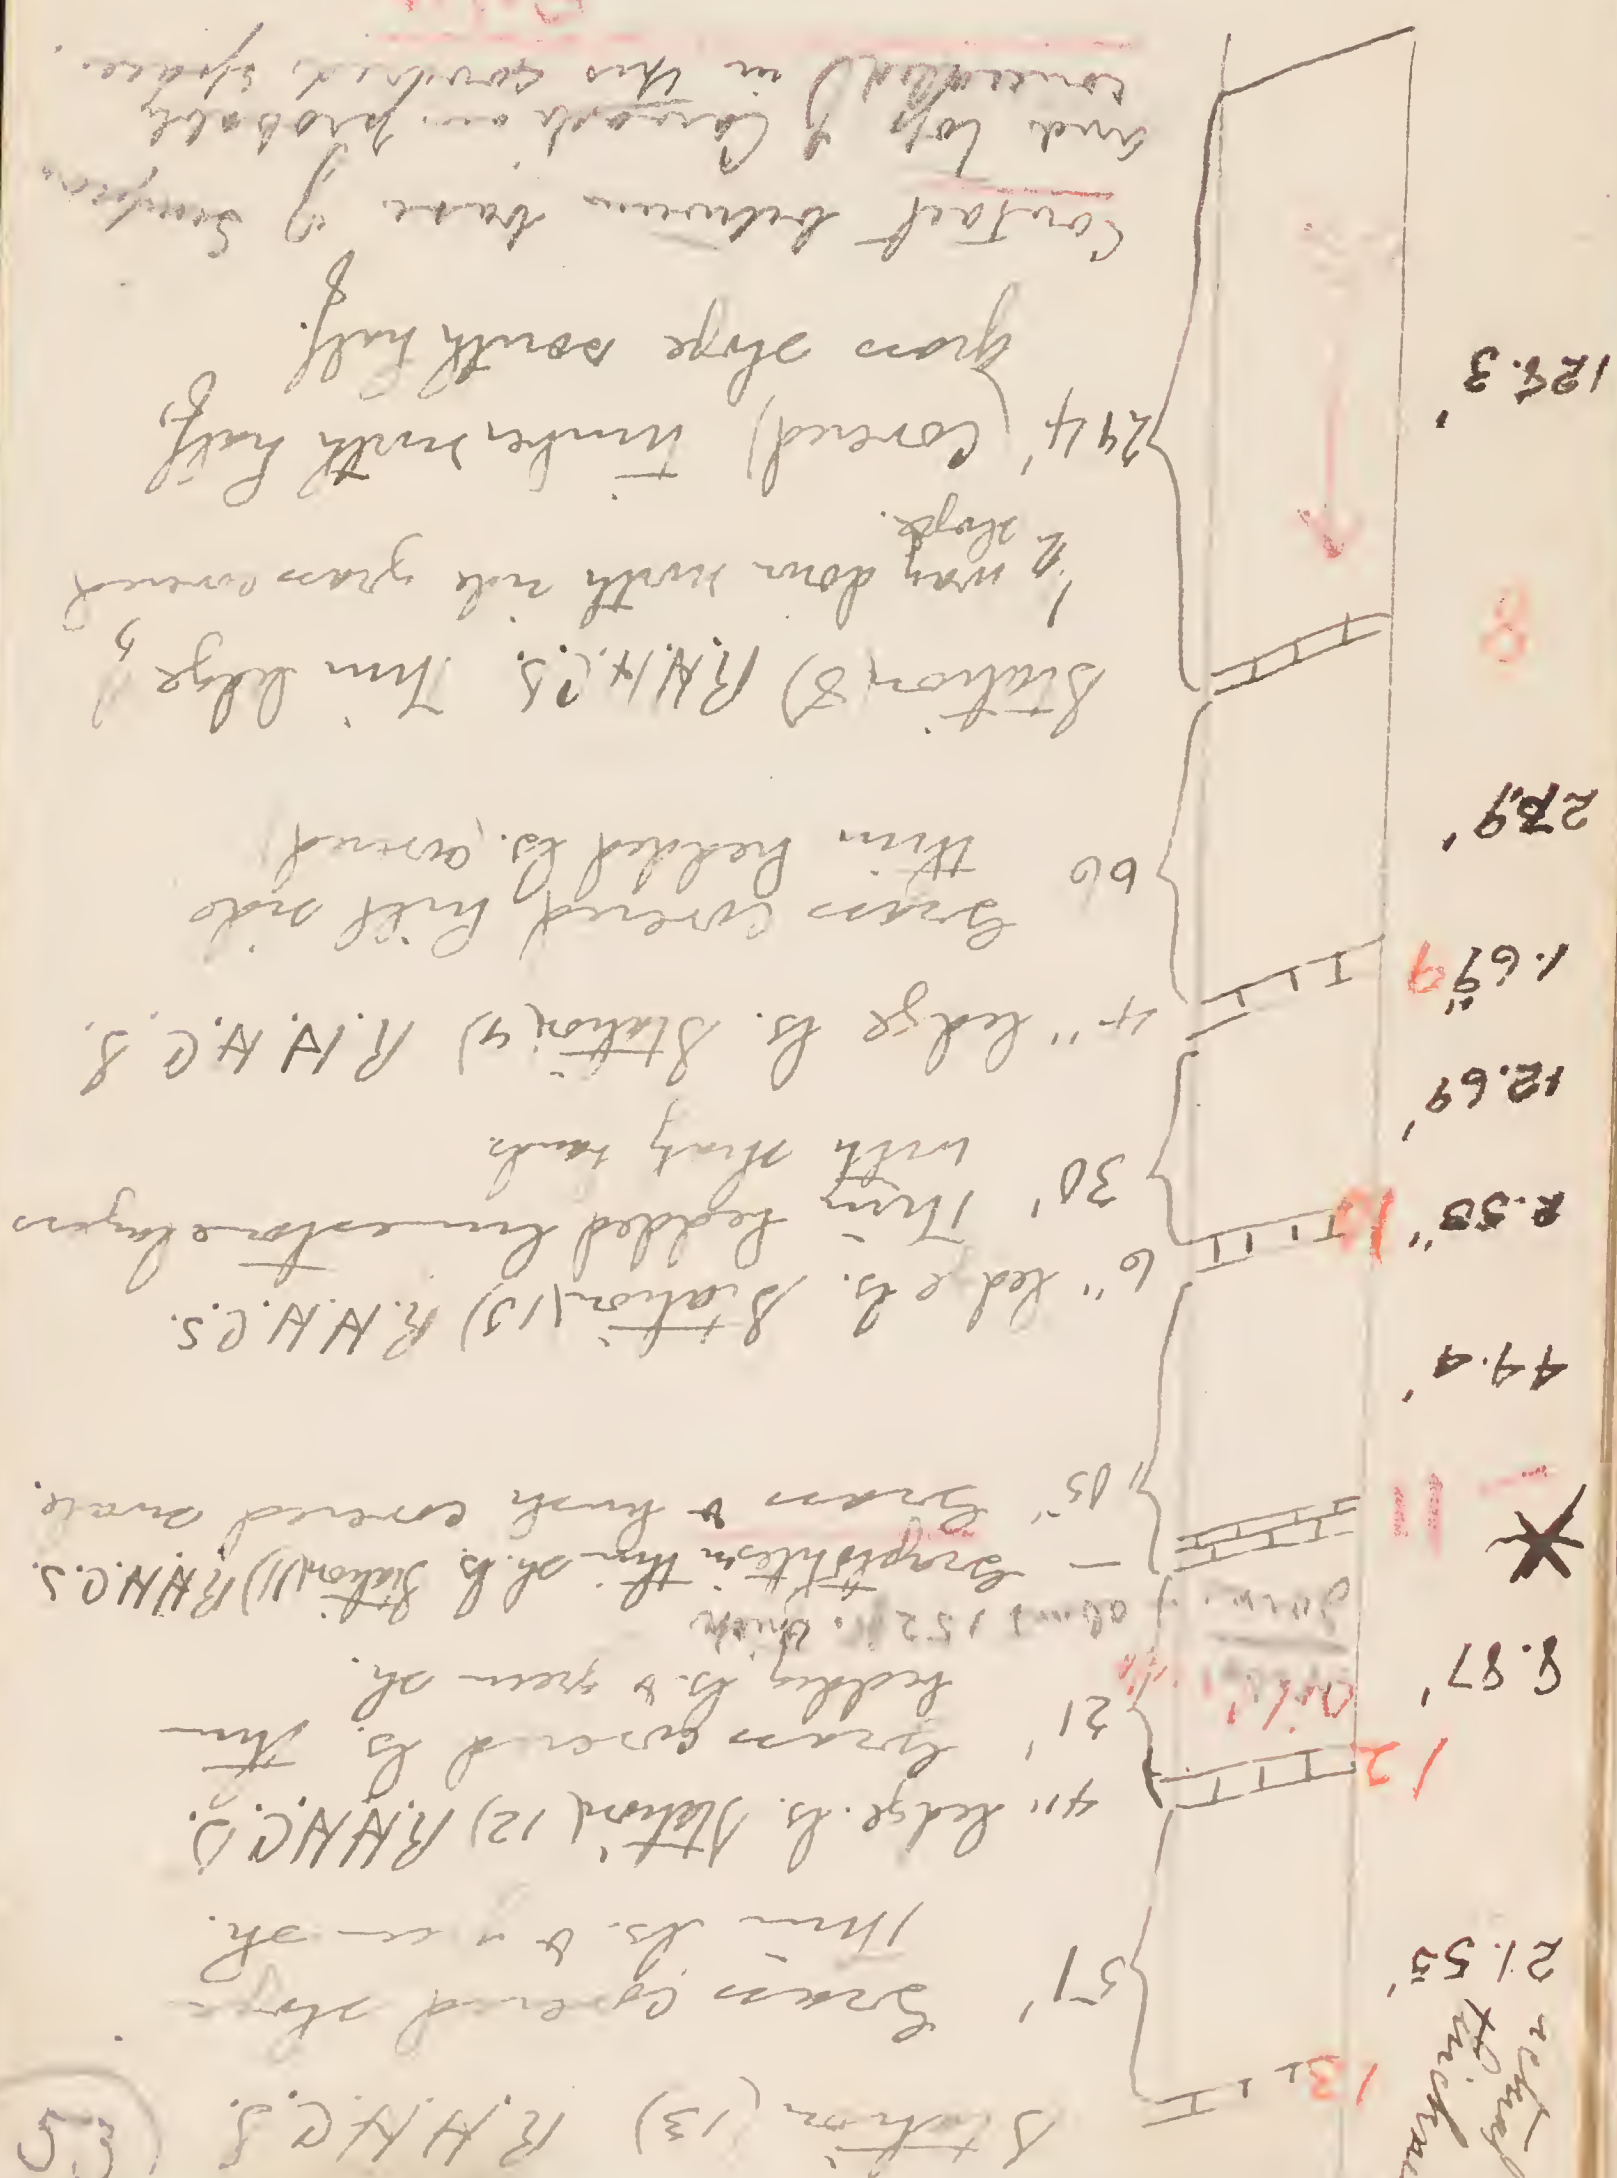 55
Station (13) R.H.H.C.S.
actual
thick
21.55'
13
51'
Grass covered slope
Thin ls. & green sh.
4" ledge ls. Station (12) R.H.H.C.S.
12
8.87'
21'
Grass covered ls. thin
bedding ls. & green sh.
about 152 ft. thick
Graptolites in thin sh. ls. Station (11) R.H.H.C.S.
11
Grass & brush covered swale.
44.4'
6" ledge ls. Station (10) R.H.H.C.S.
10
2.53"
30'
Thin bedded limestone layers
with shaly bands
12.69'
4" ledge ls. Station (9) R.H.H.C.S.
9
1.69"
66
Grass covered hill side
thin bedded ls. (covered)
27.9'
Station (8) R.H.H.C.S. Thin ledge,
8
1/2 way down north side grass covered
slope.
294' (Covered) Timber north half,
grass slope south half.
128.3'
Contact between base of Simpson
and top of Canadian probably
concealed in this covered space.